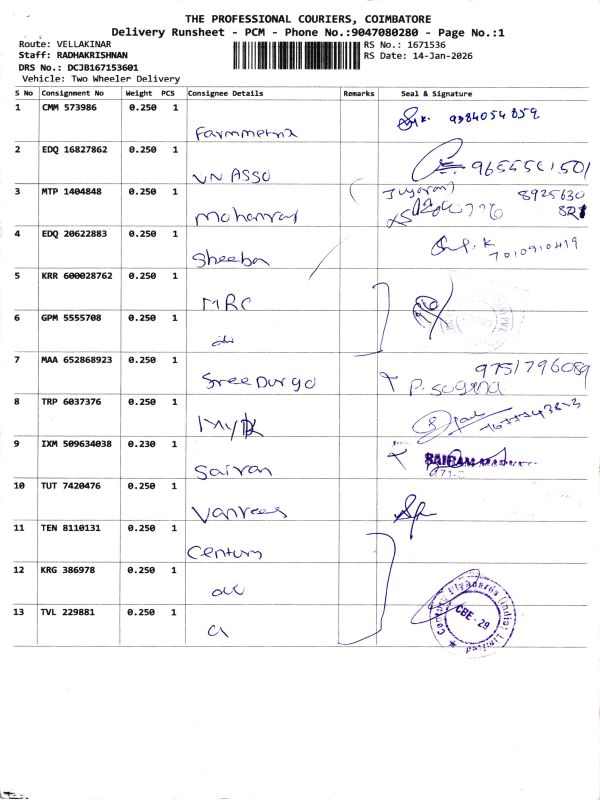 THE PROFESSIONAL COURIERS, COIMBATORE
Delivery Runsheet - PCM - Phone No.:9047080280 - Page No.:1
Route: VELLAKINAR RS No.: 1671536
Staff: RADHAKRISHNAN RS Date: 14-Jan-2026
DRS No.: DCJB167153601
Vehicle: Two Wheeler Delivery
S No Consignment No Weight PCS Consignee Details Remarks Seal & Signature
1 CMM 573986 0.250 1 Farmmetrix 9384054859
2 EDQ 16827862 0.250 1 VN ASSO 9655561501
3 MTP 1404848 0.250 1 Mohanraj 8925630
821
4 EDQ 20622883 0.250 1 Sheeba 7010910419
5 KRR 600028762 0.250 1 MRC
6 GPM 5555708 0.250 1 do
7 MAA 652868923 0.250 1 Sree Durga 9751796089
8 TRP 6037376 0.250 1
9 IXM 509634038 0.230 1 Sairam SAIRAM
10 TUT 7420476 0.250 1
11 TEN 8110131 0.250 1 Century
12 KRG 386978 0.250 1
13 TVL 229881 0.250 1
Plyboards (India) Limited
CBE - 29